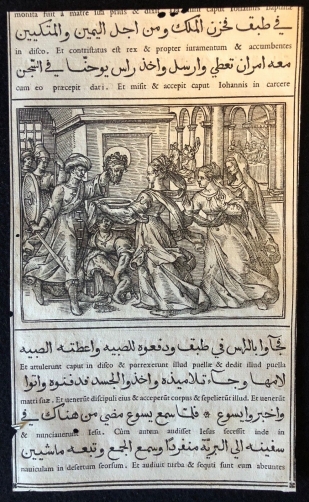 monita fuit a matre sua
في طبق فحزن الملك ومن اجل اليمين والمتكيين
in disco. Et contristatus est rex & propter iuramentum & accumbentes
معه امر ان تعطي وارسل واخذ راس يوحنا في السجن
cum eo præcepit dari. Et misit & accepit caput Iohannis in carcere
فجاوا بالراس في طبق ودفعوه للصبيه واعطته الصبيه
Et attulerunt caput in disco & porrexerunt illud puellæ & dedit illud puella
لامها وجاء تلاميذه واخذوا الجسد فدفنوه واتوا
matri suæ. Et uenerūt discipuli eius & acceperūt corpus & sepelierūt illud. Et uenerūt
واخبروا يسوع * فلما سمع يسوع مضي من هناك في
& nunciauerunt Iesu. Cùm autem audisset Iesus secessit inde in
سفينه الي البريه منفردا وسمع الجمع وتبعه ماشيين
nauiculam in desertum seorsum. Et audiuit turba & sequuti sunt eum